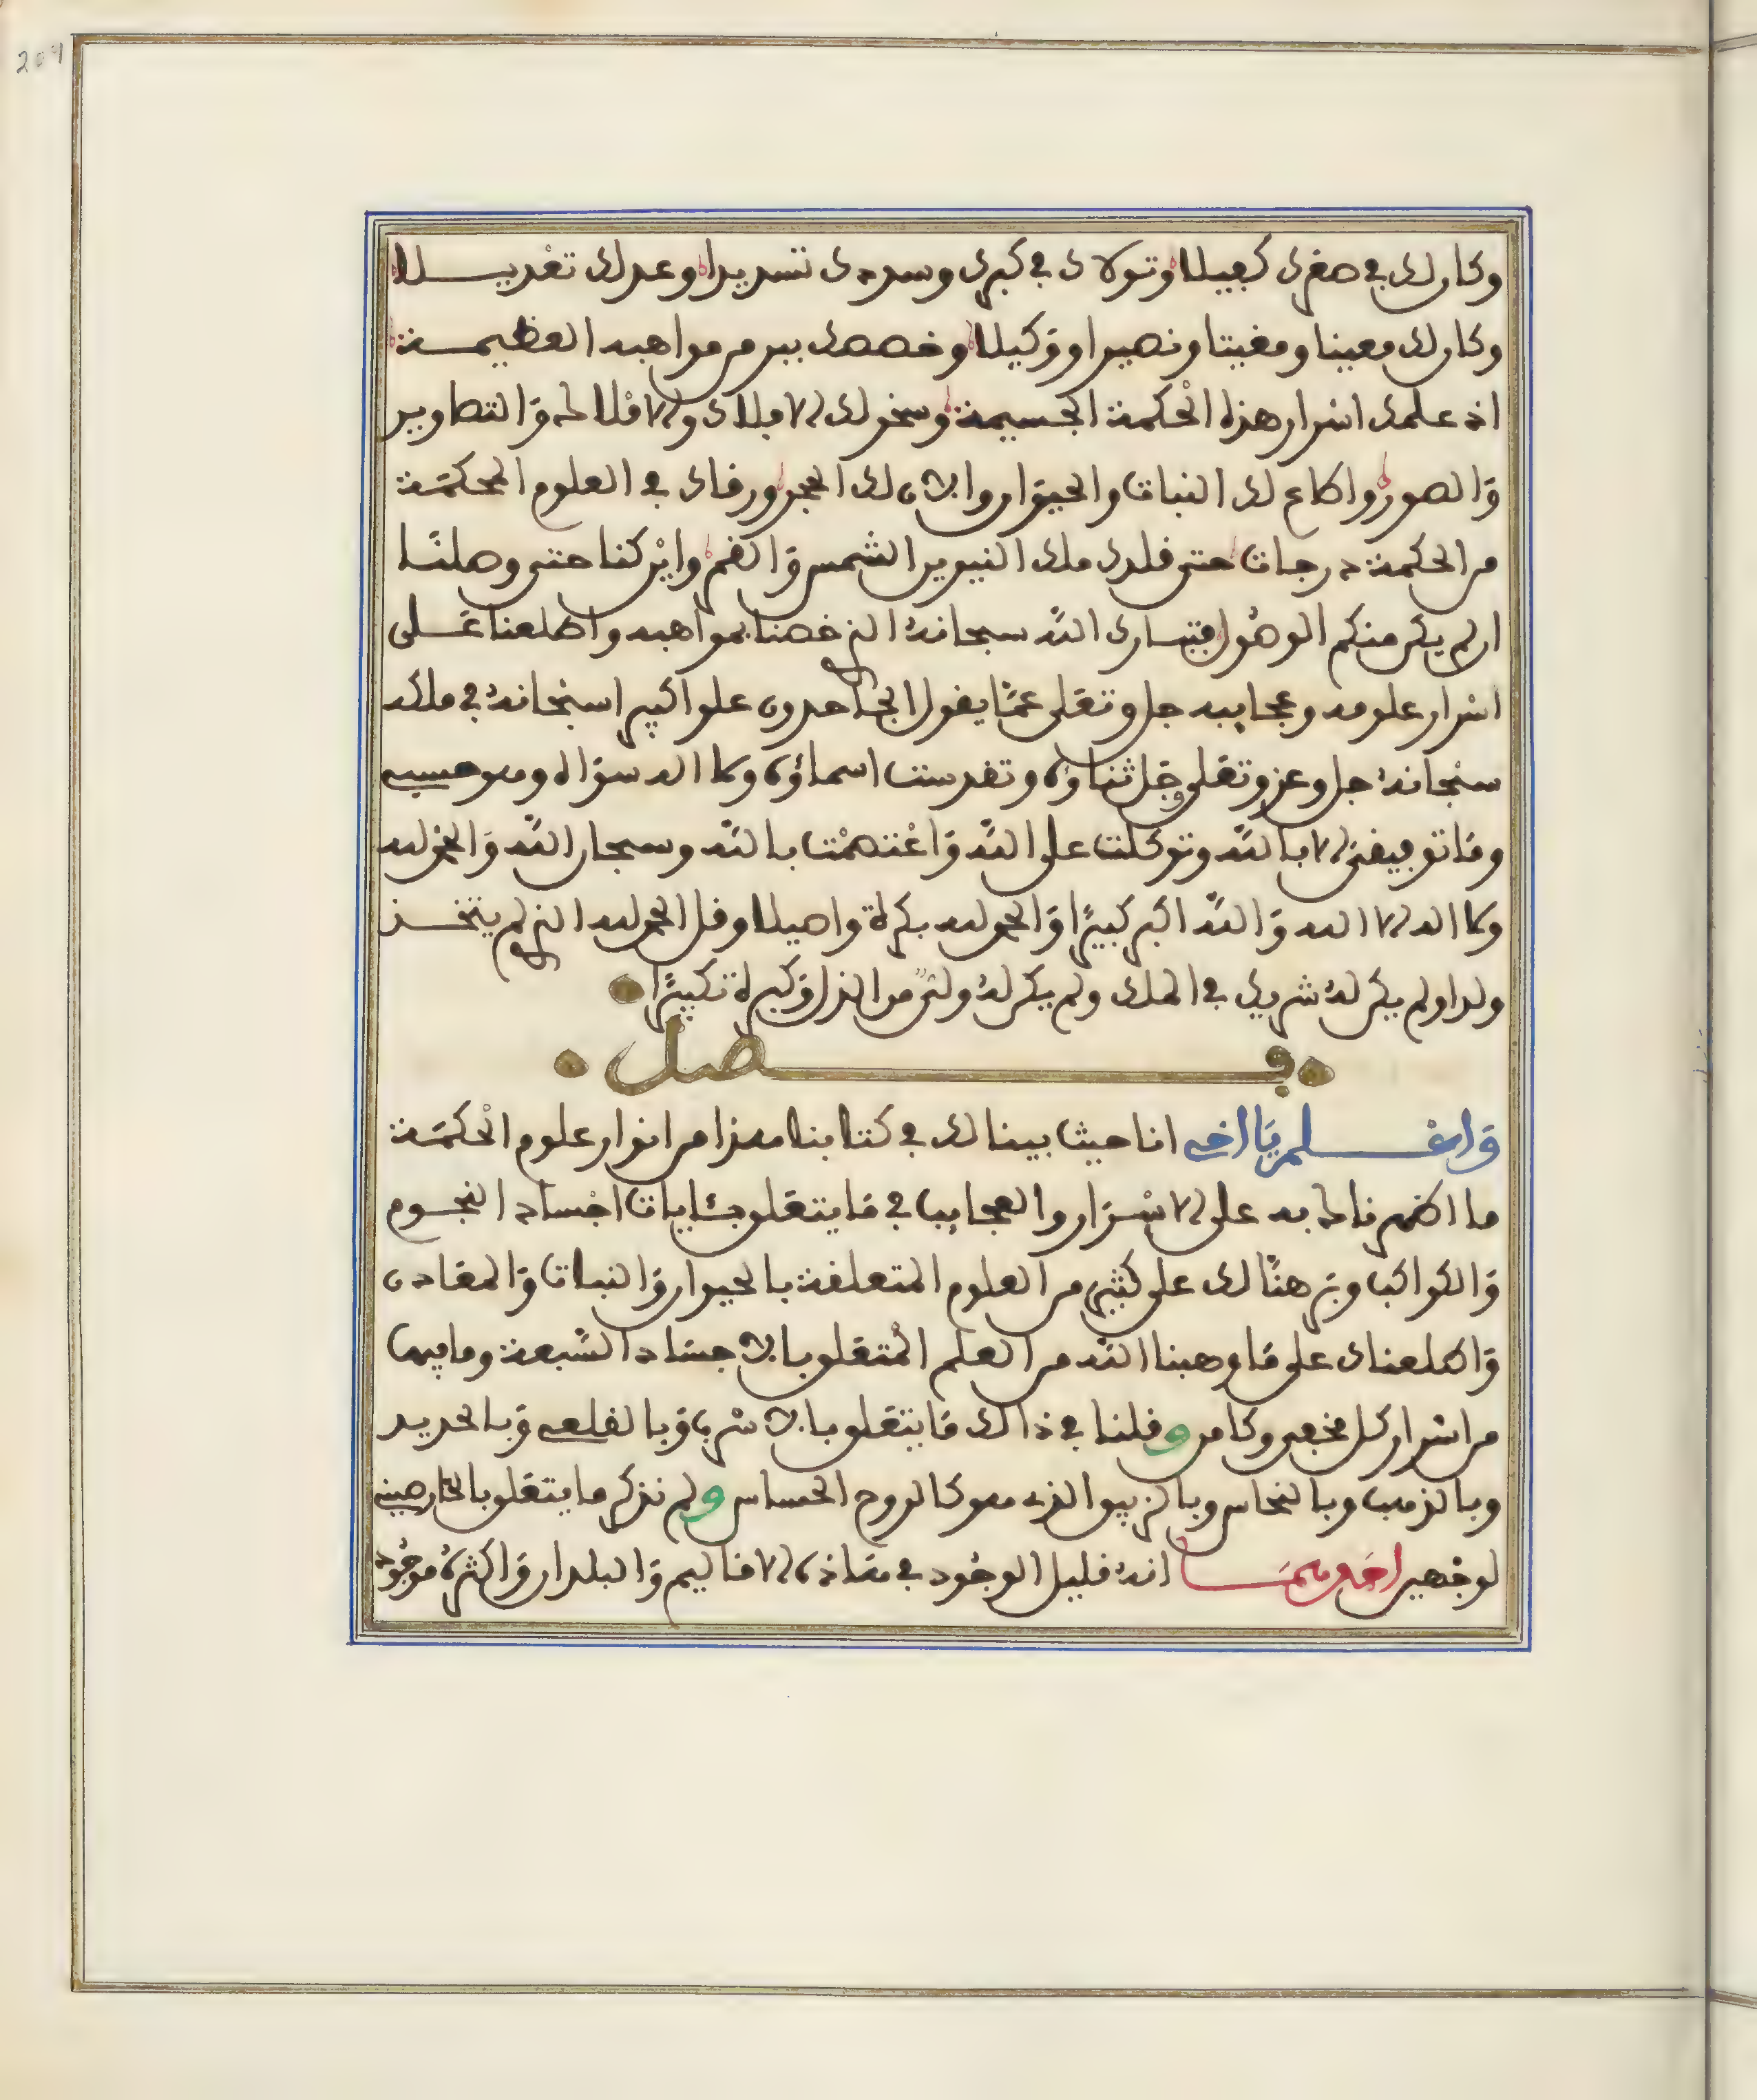 209
وكان لك في صغرك كفيلا وتولاك في كبرك وسددك تسديدا وعدلك تعديلا
وكان لك معينا ومغيثا ونصيرا ووكيلا وخصصك ببر من مواهبه العظيمة
اذ علمك اسرار هذه الحكمة الجسيمة وسخر لك الافلاك والاملاك والتصاوير
والصور واطاع لك النبات والحيوان والان لك الحجر ورقاك في العلوم المحكمة
من الحكمة درجات حتى قلدك ملك النيرين الشمس والقمر واين كنا حتى وصلنا
ان لم يكن منكم الوصول فتبارك الله سبحانه الذي خصنا بمواهبه واطلعنا على
اسرار علومه وعجايبه جل وتعلى عما يقول الجاحدون علوا كبيرا سبحانه في ملكه
سبحانه جل وعز وتعلى وجل ثناؤه وتقدست اسماؤه ولا اله سواه وهو حسبي
وما توفيقي الا بالله وتوكلت على الله واعتصمت بالله وسبحان الله والحمد لله
ولا اله الا الله والله اكبر كبيرا والحمد لله بكرة واصيلا وقل الحمد لله الذي لم يتخذ
ولدا ولم يكن له شريك في الملك ولم يكن له ولي من الذل وكبره تكبيرا
فصل
واعلم يا اخي انا حيث بينا لك في كتابنا هذا من انوار علوم الحكمة
ما اظهرناه به على الاسرار والعجايب في ما يتعلق بئايات اجساد النجوم
والكواكب وبرهنا لك على كثير من العلوم المتعلقة بالحيوان والنبات والمعادن
واطلعناك على ما وهبنا الله من العلم المتعلق بالاجساد السبعة وما فيها
من اسرار كل مخفي وكامن وقلنا في ذالك ما يتعلق بالاسرب وبالقلعي وبالحديد
وبالذهب وبالنحاس وبالزيبق الذي هو كالروح الحساس ولم نذكر ما يتعلق بالخارصيني
لوجهين احدهما انه قليل الوجود في هذه الاقاليم والبلدان واكثره موجود